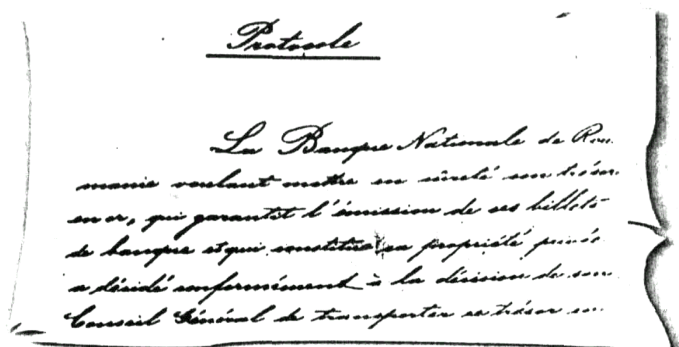 Protocole
La Banque Nationale de Rou-
manie voulant mettre en sûreté son trésor
en or, qui garantit l'émission de ses billets
de banque et qui constitue sa propriété privée
a décidé conformément à la décision de son
Conseil Général de transporter ce trésor en